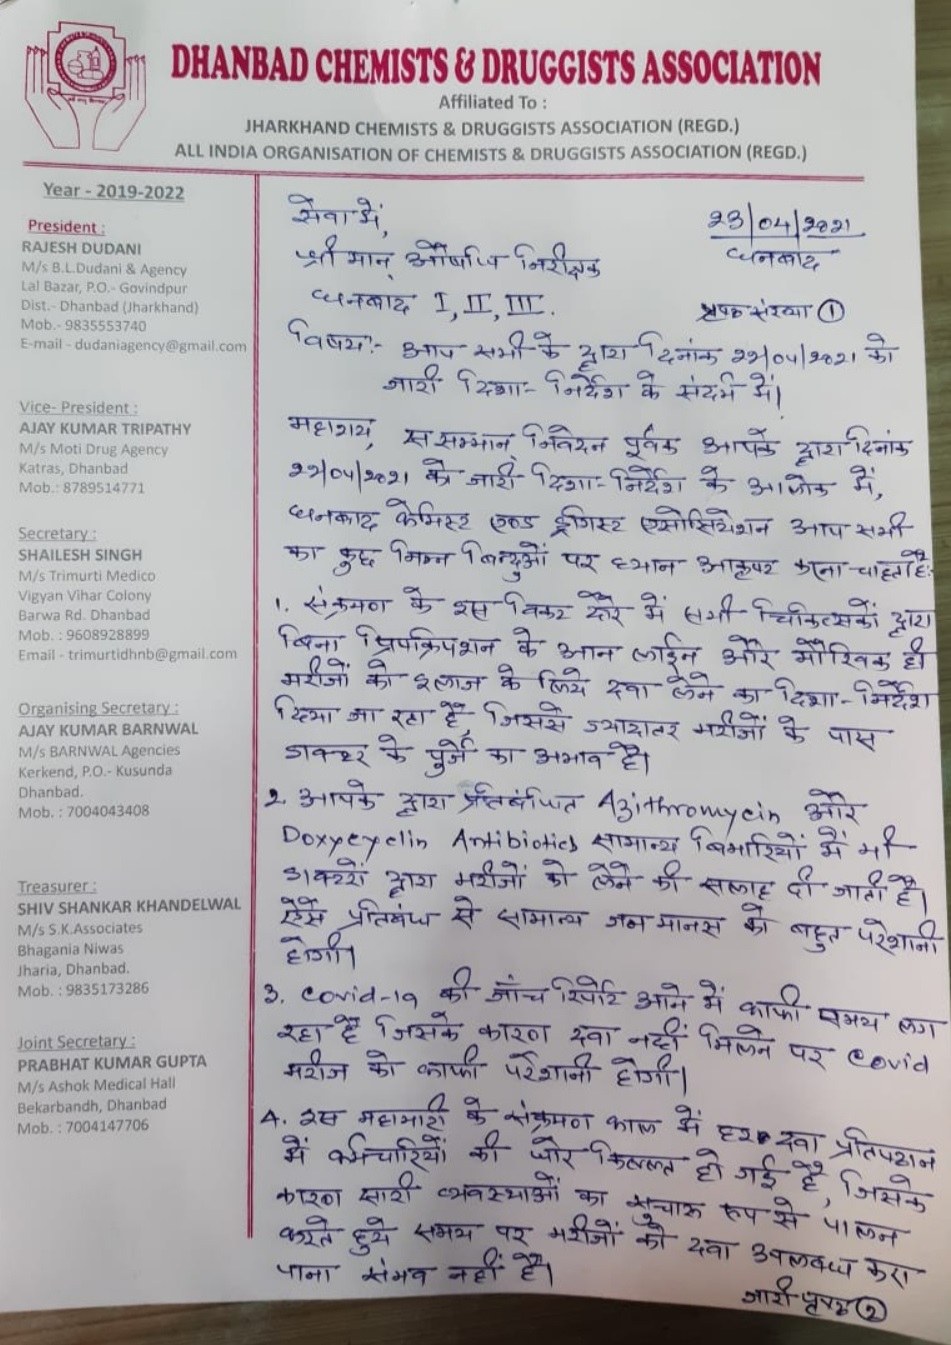 DHANBAD CHEMISTS & DRUGGISTS ASSOCIATION
Affiliated To :
JHARKHAND CHEMISTS & DRUGGISTS ASSOCIATION (REGD.)
ALL INDIA ORGANISATION OF CHEMISTS & DRUGGISTS ASSOCIATION (REGD.)
Year - 2019-2022
President :
RAJESH DUDANI
M/s B.L.Dudani & Agency
Lal Bazar, P.O.- Govindpur
Dist.- Dhanbad (Jharkhand)
Mob.- 9835553740
E-mail - dudaniagency@gmail.com
Vice- President :
AJAY KUMAR TRIPATHY
M/s Moti Drug Agency
Katras, Dhanbad
Mob.: 8789514771
Secretary :
SHAILESH SINGH
M/s Trimurti Medico
Vigyan Vihar Colony
Barwa Rd. Dhanbad
Mob. : 9608928899
Email - trimurtidhnb@gmail.com
Organising Secretary :
AJAY KUMAR BARNWAL
M/s BARNWAL Agencies
Kerkend, P.O.- Kusunda
Dhanbad.
Mob. : 7004043408
Treasurer :
SHIV SHANKAR KHANDELWAL
M/s S.K.Associates
Bhagania Niwas
Jharia, Dhanbad.
Mob. : 9835173286
Joint Secretary :
PRABHAT KUMAR GUPTA
M/s Ashok Medical Hall
Bekarbandh, Dhanbad
Mob. : 7004147706
सेवा में,
23/04/2021
श्री मान् औषधि निरीक्षक
धनबाद
धनबाद I, II, III.
संख्या ①
विषय:- आप सभी के द्वारा दिनांक 22/04/2021 को
जारी दिशा-निर्देश के संदर्भ में।
महाशय, स सम्मान निवेदन पूर्वक आपके द्वारा दिनांक
22/04/2021 को जारी दिशा-निर्देश के आलोक में,
धनबाद केमिस्ट एण्ड ड्रगिस्ट एसोसियेशन आप सभी
का कुछ निम्न बिन्दुओं पर ध्यान करना चाहता है:
1. संक्रमण के इस विकट दौर में सभी चिकित्सकों द्वारा
बिना के आन लाईन और मौखिक ही
मरीजों को इलाज के लिये दवा लेने का दिशा-निर्देश
दिया जा रहा है, जिससे ज्यादातर मरीजों के पास
डाक्टर के पुर्जे का अभाव है।
2. आपके द्वारा प्रतिबंधित Azithromycin और
Doxycyclin Antibiotics सामान्य बिमारियों में भी
डाक्टरों द्वारा मरीजों को लेने की सलाह दी जाती है।
ऐसे प्रतिबंध से सामान्य जन मानस को बहुत परेशानी
होगी।
3. Covid-19 की जाँच रिपोर्ट आने में काफी समय लग
रहा है जिसके कारण दवा नहीं मिलने पर Covid
मरीज को काफी परेशानी होगी।
4. इस महामारी के संक्रमण काल में हर दवा प्रतिष्ठान
में कर्मचारियों की घोर किल्लत हो गई है, जिसके
कारण सारी व्यवस्थाओं का सुचारू रूप से पालन
करते हुये समय पर मरीजों को दवा उपलब्ध करा
पाना संभव नहीं है।
जारी पृष्ठ ②